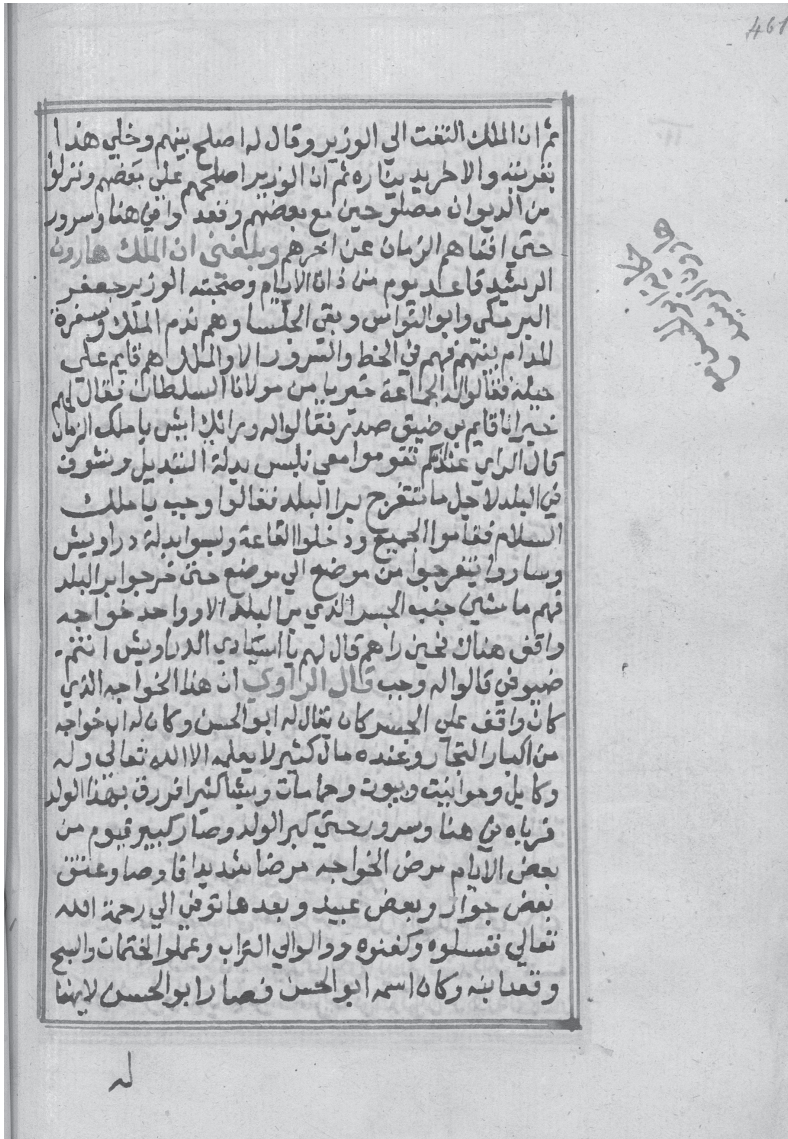 461
ثم ان الملك التفت الي الوزير وقال له اصلح بينهم وخلي هذا
بقرينه والاخر يد يناره ثم ان الوزير اصلحهم علي بعضهم ونزلوا
من الديوان مصلوحين مع بعضهم وقعدوا في هنا وسرور
حتي افناهم الزمان عن اخرهم وبلغني ان الملك هارون
الرشيد قاعد يوم من ذات الايام وصحبته الوزير جعفر
البرمكي وابو النواس وبقي الجلسا وهم ندم الملك وسفرة
المدام بينهم فهم في الحظ والسرور الا والملك هم قايم علي
حيله فقالو له الجماعة خير يا من مولانا السلطان فقال لهم
خير انا قايم من ضيق صدر فقالو له ورائك ايش يا ملك الزمان
قال الراي عندكم تقوموا معي نلبس بدلة التبديل ونشوف
في البلد لاجل ما نتفرج برا البلد فقالوا وجب يا ملك
السلام فقاموا الجميع ودخلوا القاعة ولبسوا بدلة دراويش
وساروا يتفرجوا من موضع الي موضع حتي خرجوا برا البلد
فهم ماشيين جنب الجسر الذي برا البلد الا وواحد خواجه
واقف هناك فحين راهم قال لهم يا اسيادي الدراويش انتم
ضيوفي قالو له وجب قال الراوي ان هذا الخواجه الذي
كان واقف علي الجسر كان يقال له ابو الحسن وكان له اب خواجه
من اكبار التجار وعنده مال كثير لا يعلمه الا الله تعالي وله
وكايل وحوانيت وبيوت وحمامات وشيا كثيرا فرزق بهذا الولد
فرباه في هنا وسرور حتي كبر الولد وصار كبير فيوم من
بعض الايام مرض الخواجه مرضا شديدا فاوصا وعتق
بعض جوار وبعض عبيد وبعدها توفي الي رحمة الله
تعالي فغسلوه وكفنوه ووالوالي التراب وعملو الختمات والسبح
وقعد ابنه وكان اسمه ابو الحسن فصار ابو الحسن لا يهنا
له